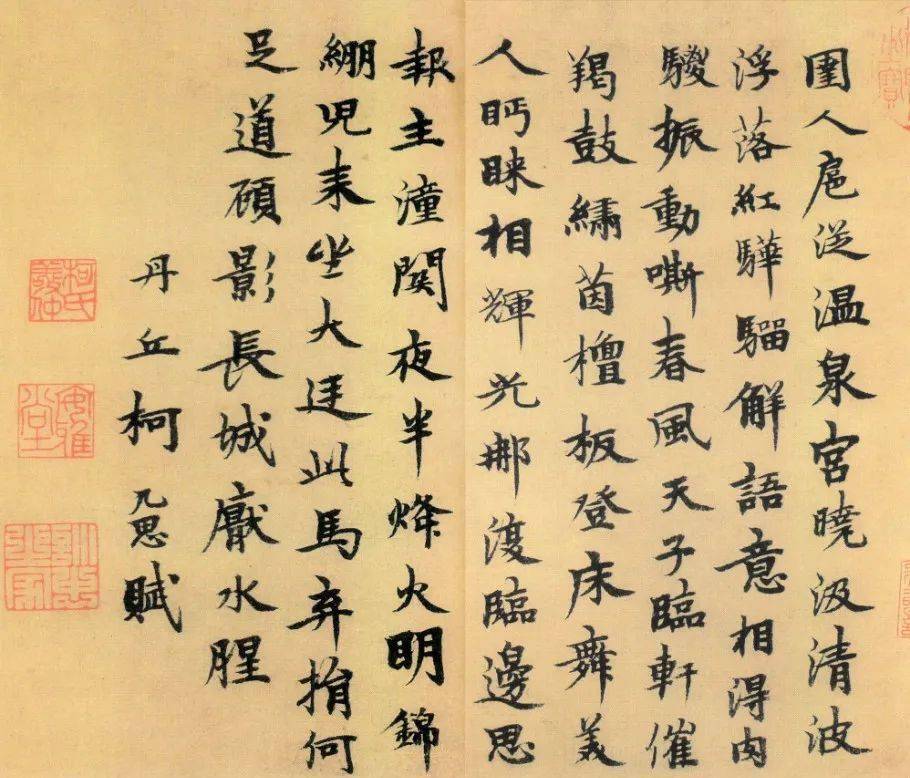 圉人扈從温泉宮曉汲清波
浮落紅驊騮解語意相得肉
騣振動嘶春風天子臨軒催
羯鼓繡茵檀板登床舞美
人眄睐相輝光那復臨邊思
報主潼関夜半烽火明錦
綳兒来坐大廷此馬弃捐何
足道碩影長城厭水腥
丹丘柯九思賦
柯氏敬仲